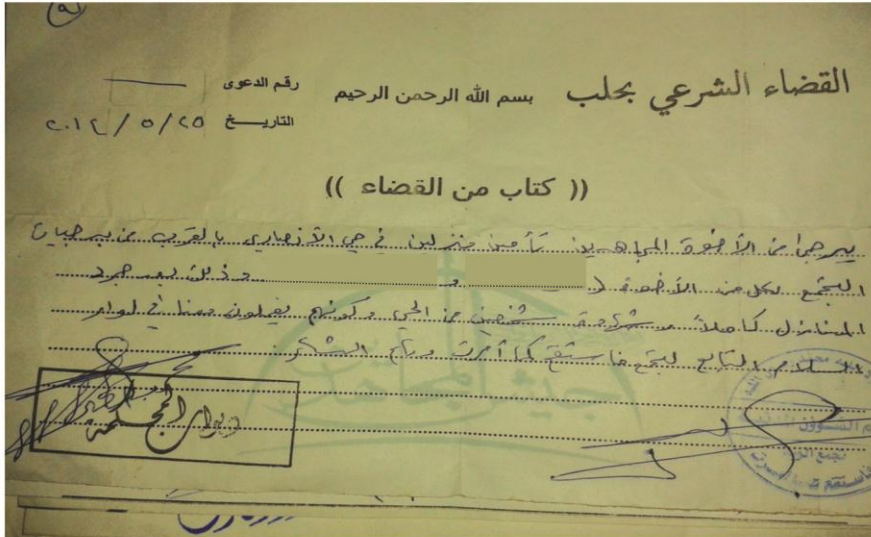 القضاء الشرعي بحلب
بسم الله الرحمن الرحيم
رقم الدعوى
التاريخ ٢٠١٤/٥/٢٥
(( كتاب من القضاء ))
يرجى من الأخوة المجاهدين تأمين منزلين في حي الأنصاري بالقرب من
التجمع لكل من الأخوة ( و وذلك بعد جرد
المنازل كاملاً و شهادة شخصين من الحي وكونهم يعملون معنا في لواء
السلام التابع للتجمع فاستقم كما أمرت ولكم الشكر
جيش المجاهدين
ديوان المحكمة